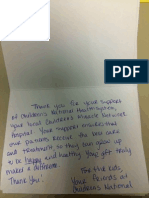 Thank you for your support
of Children's National Health System,
your local Children's Miracle Network
Hospital. Your support ensures that
our patients receive the best care
and treatment so they can grow up
to be happy and healthy. Your gift truly
makes a difference.
For the kids,
Thank you.
Your Patients at
Children's National